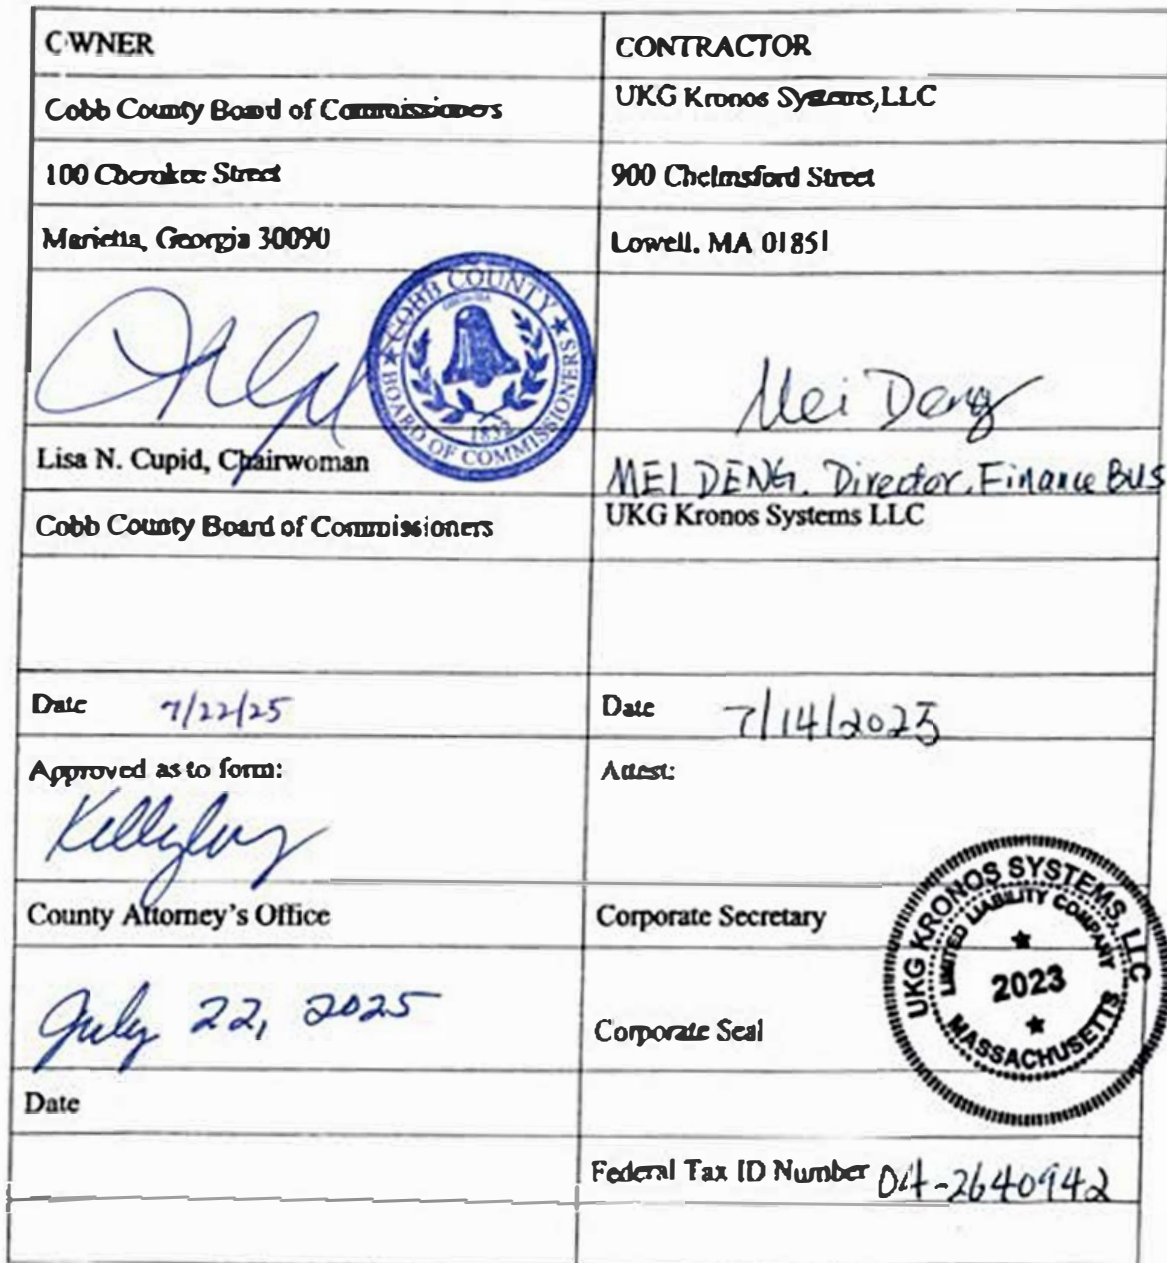 OWNER
CONTRACTOR
Cobb County Board of Commissioners
UKG Kronos Systems, LLC
100 Cherokee Street
900 Chelmsford Street
Marietta, Georgia 30090
Lowell, MA 01851
COBB COUNTY
BOARD OF COMMISSIONERS
1832
Mei Deng
Lisa N. Cupid, Chairwoman
MEI DENG, Director, Finance Bus
Cobb County Board of Commissioners
UKG Kronos Systems LLC
Date 7/22/25
Date 7/14/2025
Approved as to form:
Attest:
County Attorney's Office
Corporate Secretary
UKG KRONOS SYSTEMS, LLC
LIMITED LIABILITY COMPANY
2023
MASSACHUSETTS
July 22, 2025
Corporate Seal
Date
Federal Tax ID Number 04-2640942